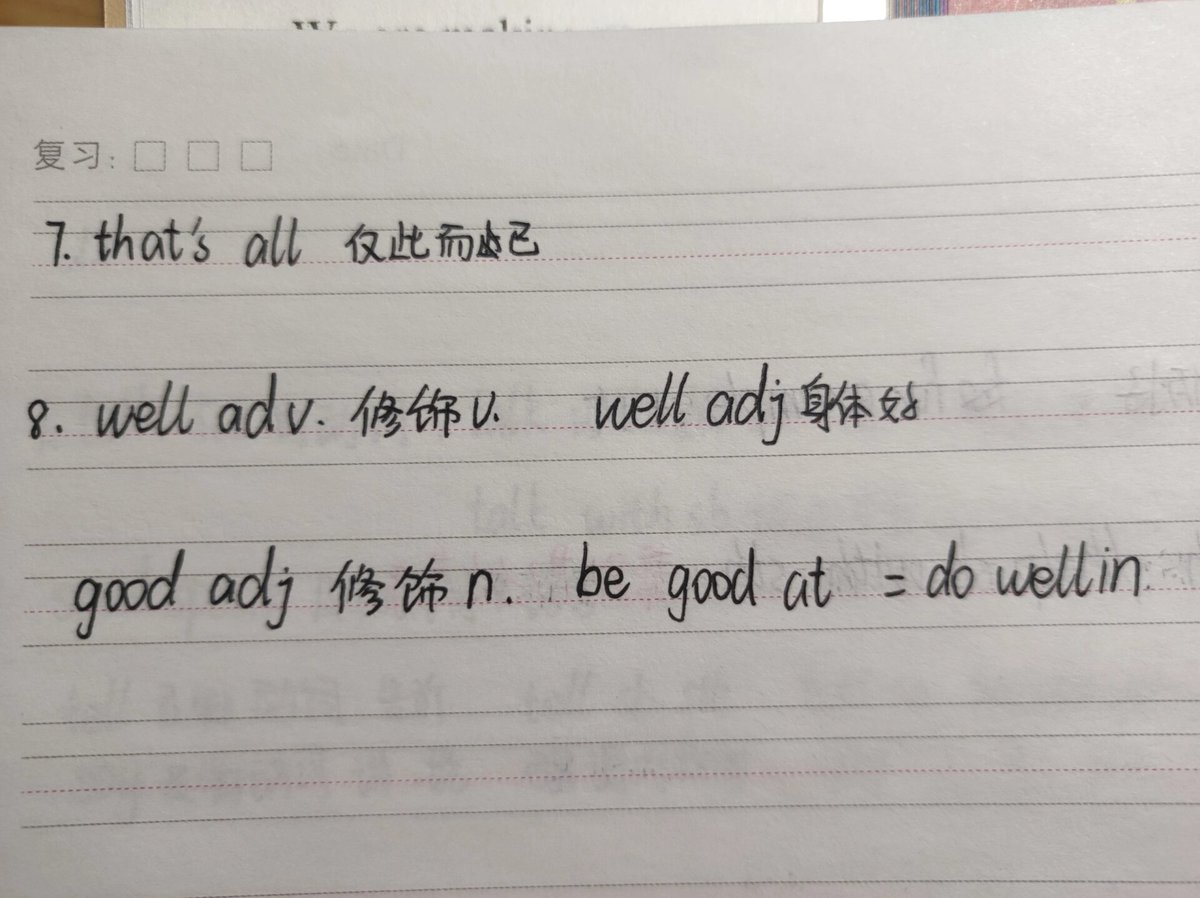 复习:
7. that's all 仅此而已
8. well adv. 修饰v. well adj 身体好
good adj 修饰n. be good at = do well in.